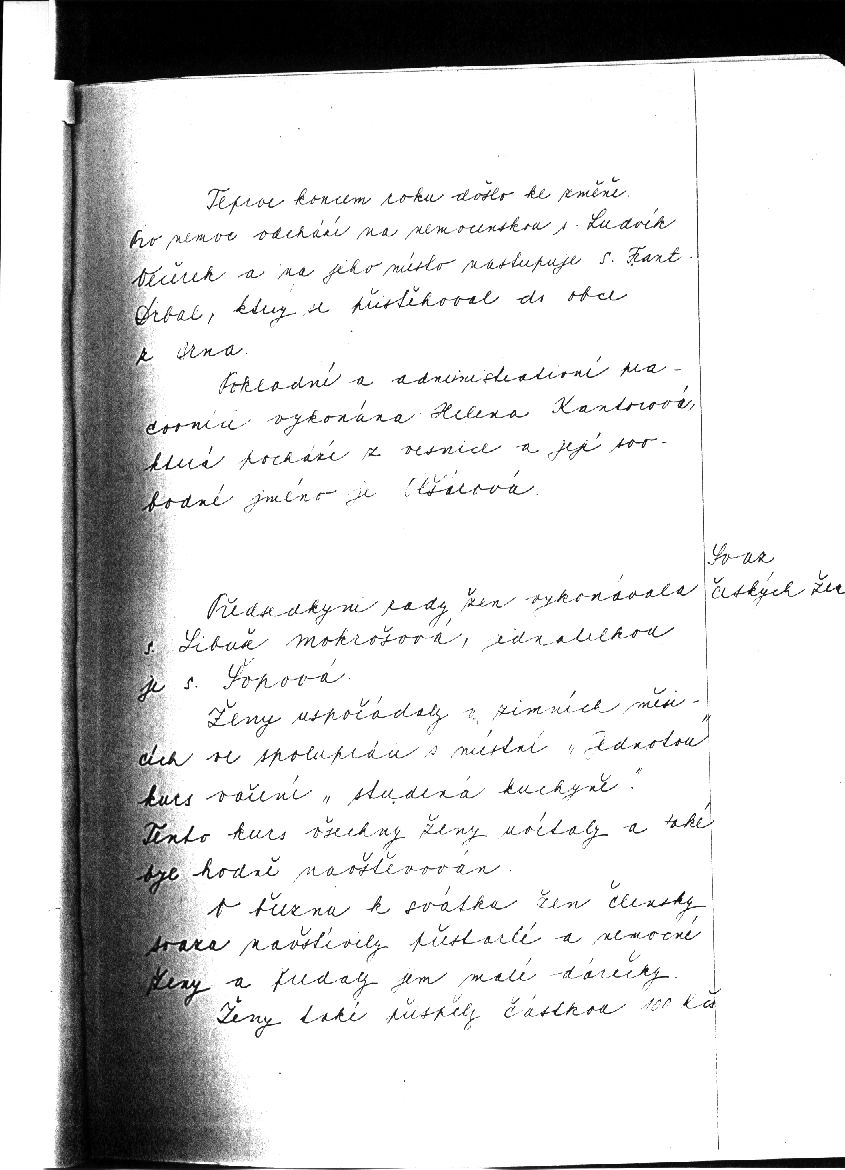 Teprve koncem roku došlo ke změně.
Pro nemoc odchází na nemocenskou s. Ludvík
Věčerek a na jeho místo nastupuje s. Frant.
Drbal, který se přistěhoval do obce
z Brna.
Pokladní a administrativní pra-
covnici vykonána Helena Kantorová,
která pochází z vesnice a její svo-
bodné jméno je
Svaz
českých žen
Předsedkyni rady žen vykonávala
s. Libuše Mokrošová, jednatelkou
je s. Šopová.
Ženy uspořádaly v zimních měsí-
cích ve spolupráci s místní „Jednotou"
kurs vaření „studená kuchyně".
Tento kurs všechny ženy uvítaly a také
byl hodně navštěvován.
V březnu k svátku žen členky
svazu navštívily přestarlé a nemocné
ženy a předaly jim malé dárečky.
Ženy také přispěly částkou 100 Kčs